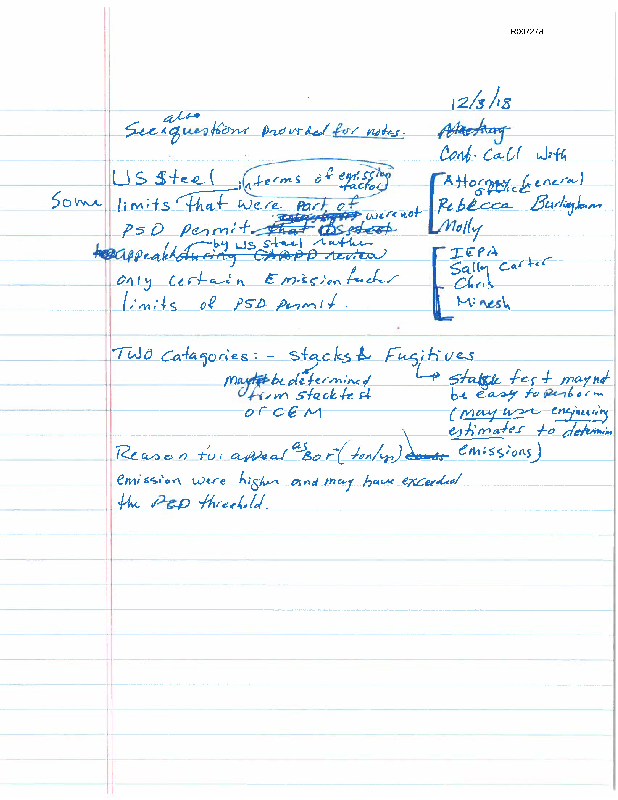 R007274
12/3/18
also
See questions provided for notes.
Conf. Call with
US Steel in terms of emission
factor
Attorney General
office
Some limits that were part of
were not
Rebecca Burlingham
PSD Permit that US Steel
Molly
by US Steel rather
appeal during CAAPP review
IEPA
Sally Carter
only certain Emission factor
Chris
limits of PSD Permit.
Minesh
TWO Catagories: - Stacks & Fugitives
may be determined
from stack test
or CEM
stack test may not
be easy to perform
(may use engineering
estimates to determin
emissions)
Reason for appeal as BOF (ton/yr)
emission were higher and may have exceeded
the PSD threshold.